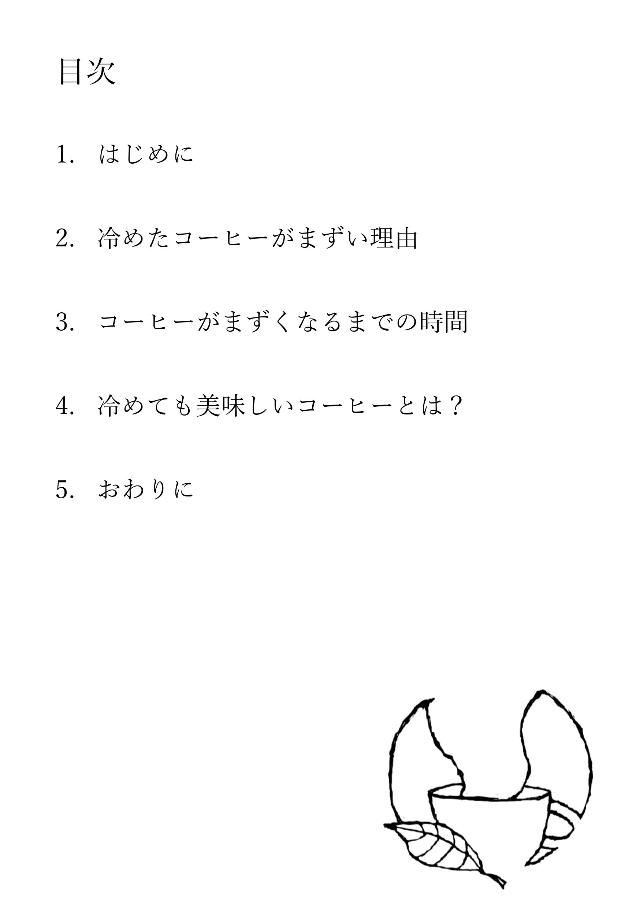 目次
1. はじめに
2. 冷めたコーヒーがまずい理由
3. コーヒーがまずくなるまでの時間
4. 冷めても美味しいコーヒーとは？
5. おわりに